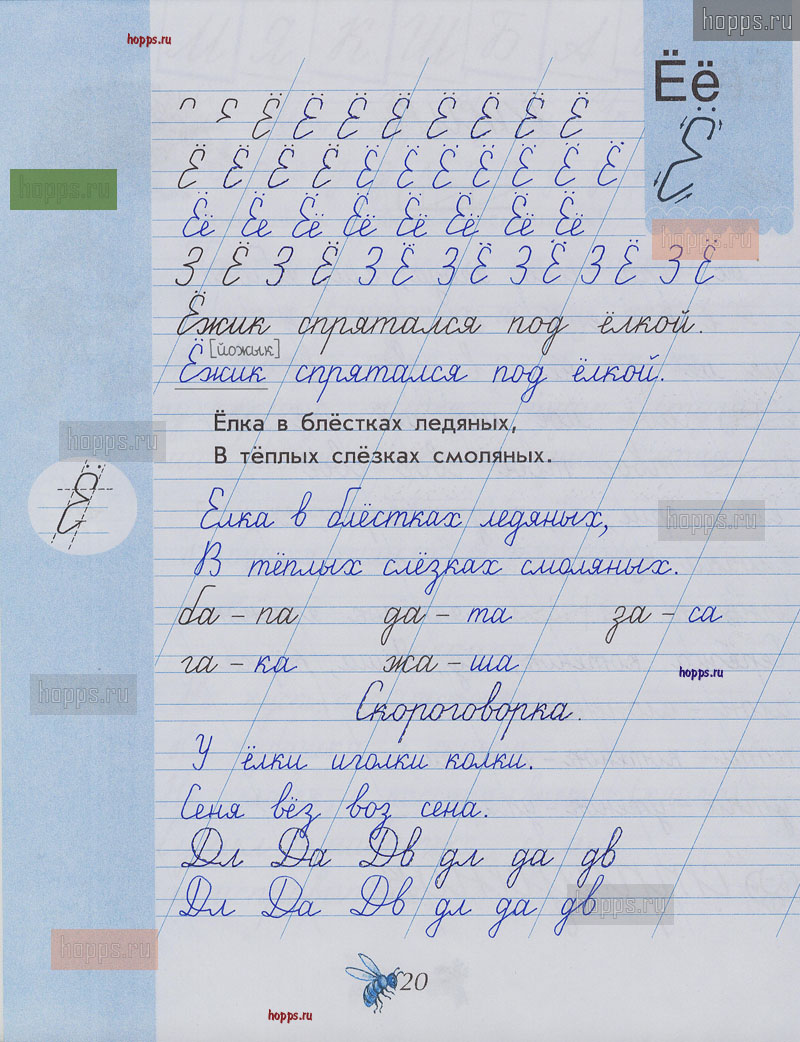 hopps.ru
hopps.ru
Ёё
Ё
Ё Ё Ё Ё Ё Ё Ё Ё
Ё Ё Ё Ё Ё Ё Ё Ё Ё Ё Ё
hopps.ru
Ёё Ёё Ёё Ёё Ёё Ёё Ёё Ёё
hopps.ru
З Ё З Ё З Ё З Ё З Ё З Ё З Ё
Ёжик спрятался под ёлкой.
[йожык]
Ёжик спрятался под ёлкой.
Ёлка в блёстках ледяных,
hopps.ru
В тёплых слёзках смоляных.
Ё
Елка в блёстках ледяных,
hopps.ru
В тёплых слёзках смоляных.
ба – па да – та за – са
га – ка жа – ша
hopps.ru
hopps.ru
Скороговорка.
У ёлки иголки колки.
Сеня вёз воз сена.
Дл Да Дв дл да дв
Дл Да Дв дл да дв
hopps.ru
hopps.ru
20
hopps.ru